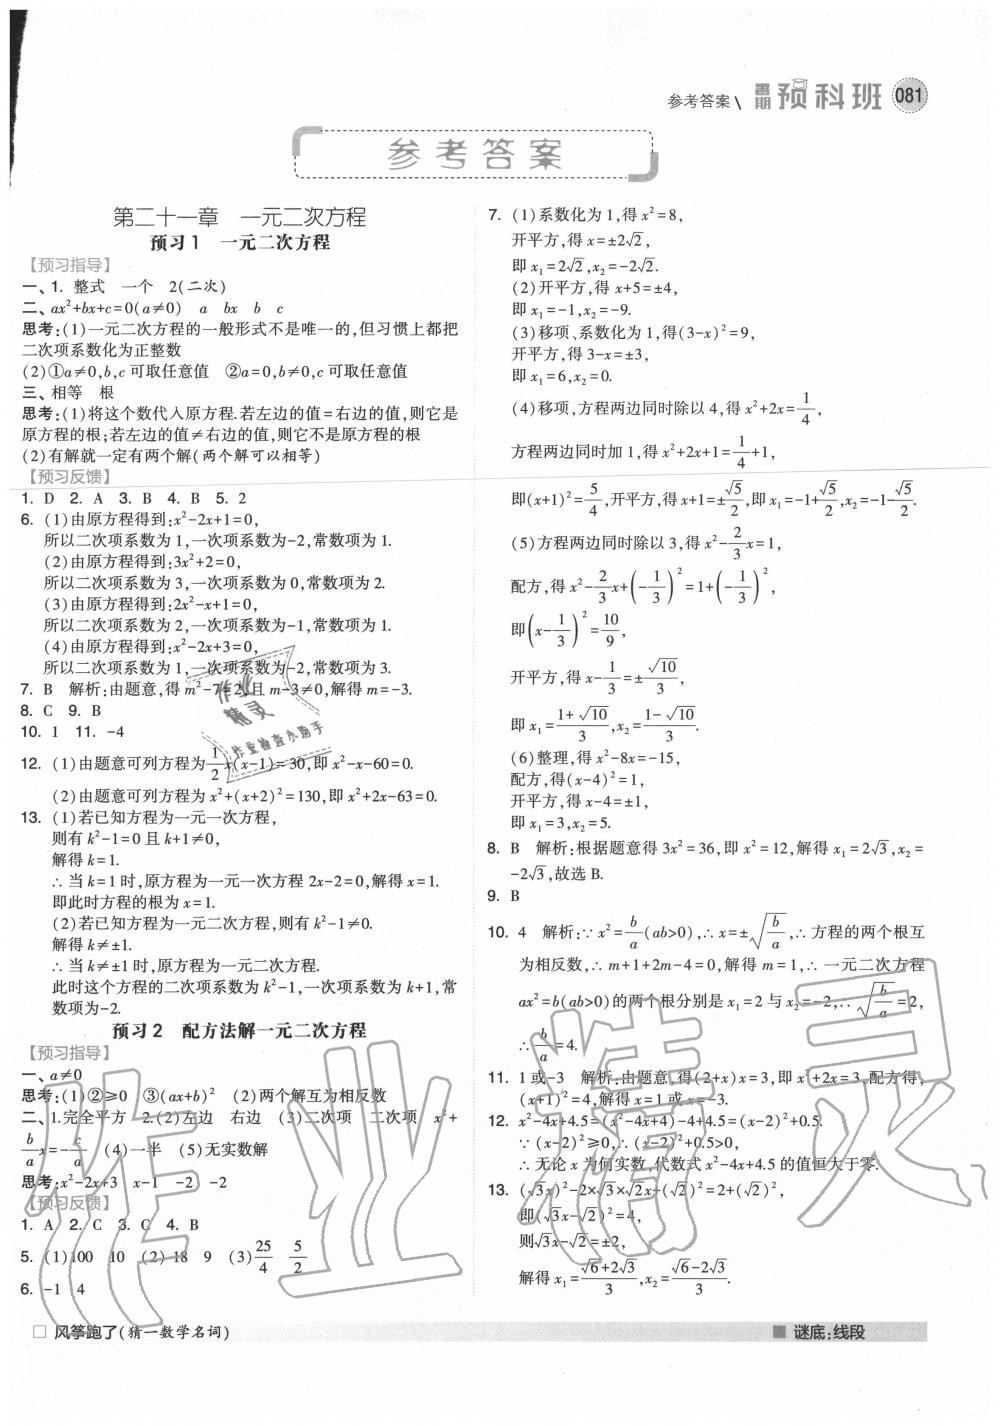 参考答案\ 暑期 预科班 081
参考答案
第二十一章 一元二次方程
预习1 一元二次方程
【预习指导】
一、1. 整式 一个 2(二次)
二、ax²+bx+c=0(a≠0) a bx b c
思考:(1)一元二次方程的一般形式不是唯一的,但习惯上都把
二次项系数化为正整数
(2)①a≠0,b,c可取任意值 ②a=0,b≠0,c可取任意值
三、相等 根
思考:(1)将这个数代入原方程.若左边的值=右边的值,则它是
原方程的根;若左边的值≠右边的值,则它不是原方程的根
(2)有解就一定有两个解(两个解可以相等)
【预习反馈】
1. D 2. A 3. B 4. B 5. 2
6. (1)由原方程得到:x²-2x+1=0,
所以二次项系数为1,一次项系数为-2,常数项为1.
(2)由原方程得到:3x²+2=0,
所以二次项系数为3,一次项系数为0,常数项为2.
(3)由原方程得到:2x²-x+1=0,
所以二次项系数为2,一次项系数为-1,常数项为1.
(4)由原方程得到:x²-2x+3=0,
所以二次项系数为1,一次项系数为-2,常数项为3.
7. B 解析:由题意,得m²-7=2,且m-3≠0,解得m=-3.
8. C 9. B
10. 1 11. -4
12. (1)由题意可列方程为1/2x(x-1)=30,即x²-x-60=0.
(2)由题意可列方程为x²+(x+2)²=130,即x²+2x-63=0.
13. (1)若已知方程为一元一次方程,
则有k²-1=0且k+1≠0,
解得k=1.
∴当k=1时,原方程为一元一次方程2x-2=0,解得x=1.
即此时方程的根为x=1.
(2)若已知方程为一元二次方程,则有k²-1≠0.
解得k≠±1.
∴当k≠±1时,原方程为一元二次方程.
此时这个方程的二次项系数为k²-1,一次项系数为k+1,常
数项为-2.
预习2 配方法解一元二次方程
【预习指导】
一、a≠0
思考:(1)②≥0 ③(ax+b)² (2)两个解互为相反数
二、1.完全平方 2.(2)左边 右边 (3)二次项 二次项 x²+
b/a x=-c/a (4)一半 (5)无实数解
思考:x²-2x+3 x-1 -2 -2
【预习反馈】
1. A 2. C 3. C 4. B
5. (1)100 10 (2)18 9 (3)25/4 5/2
6. -1 4
7. (1)系数化为1,得x²=8,
开平方,得x=±2√2,
即x₁=2√2,x₂=-2√2.
(2)开平方,得x+5=±4,
即x₁=-1,x₂=-9.
(3)移项、系数化为1,得(3-x)²=9,
开平方,得3-x=±3,
即x₁=6,x₂=0.
(4)移项,方程两边同时除以4,得x²+2x=1/4,
方程两边同时加1,得x²+2x+1=1/4+1,
即(x+1)²=5/4,开平方,得x+1=±√5/2,即x₁=-1+√5/2,x₂=-1-√5/2.
(5)方程两边同时除以3,得x²-2/3x=1,
配方,得x²-2/3x+(-1/3)²=1+(-1/3)²,
即(x-1/3)²=10/9,
开平方,得x-1/3=±√10/3,
即x₁=(1+√10)/3,x₂=(1-√10)/3.
(6)整理,得x²-8x=-15,
配方,得(x-4)²=1,
开平方,得x-4=±1,
即x₁=3,x₂=5.
8. B 解析:根据题意得3x²=36,即x²=12,解得x₁=2√3,x₂=
-2√3,故选B.
9. B
10. 4 解析:∵x²=b/a(ab>0),∴x=±√(b/a),∴方程的两个根互
为相反数,∴m+1+2m-4=0,解得m=1,∴一元二次方程
ax²=b(ab>0)的两个根分别是x₁=2与x₂=-2,∴√(b/a)=2,
∴b/a=4.
11. 1或-3 解析:由题意,得(2+x)x=3,即x²+2x=3,配方得,
(x+1)²=4,解得x=1或x=-3.
12. x²-4x+4.5=(x²-4x+4)-4+4.5=(x-2)²+0.5.
∵(x-2)²≥0,∴(x-2)²+0.5>0,
∴无论x为何实数,代数式x²-4x+4.5的值恒大于零.
13. (√3x)²-2×√3×√2x+(√2)²=2+(√2)²,
即(√3x-√2)²=4,
则√3x-√2=±2,
解得x₁=(√6+2√3)/3,x₂=(√6-2√3)/3.
□ 风筝跑了(猜一数学名词) ■ 谜底:线段
作业精灵
作业检查小助手
作业精灵